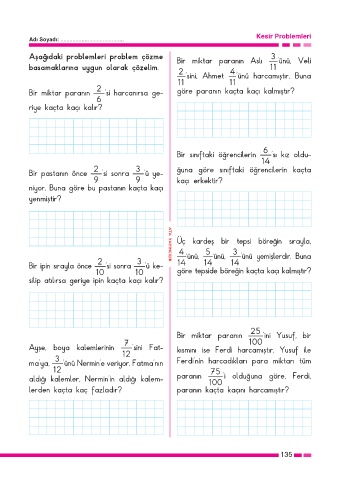 Kesir Problemleri
Adı Soyadı: ................................
Aşağıdaki problemleri problem çözme
basamaklarına uygun olarak çözelim.
Bir miktar paranın 2/6 'si harcanırsa ge-
riye kaçta kaçı kalır?
Bir pastanın önce 2/9 'si sonra 3/9 'ü ye-
niyor. Buna göre bu pastanın kaçta kaçı
yenmiştir?
Bir ipin sırayla önce 2/10 'si sonra 3/10 'ü ke-
silip atılırsa geriye ipin kaçta kaçı kalır?
Ayşe, boya kalemlerinin 7/12 'sini Fat-
ma'ya, 3/12 'ünü Nermin'e veriyor. Fatma'nın
aldığı kalemler, Nermin'in aldığı kalem-
lerden kaçta kaç fazladır?
Bir miktar paranın Aslı 3/11 'ünü, Veli
2/11 'sini, Ahmet 4/11 'ünü harcamıştır. Buna
göre paranın kaçta kaçı kalmıştır?
Bir sınıftaki öğrencilerin 6/14 'sı kız oldu-
ğuna göre sınıftaki öğrencilerin kaçta
kaçı erkektir?
Üç kardeş bir tepsi böreğin sırayla,
4/14 'ünü, 5/14 'ünü, 3/14 'ünü yemişlerdir. Buna
göre tepside böreğin kaçta kaçı kalmıştır?
Bir miktar paranın 25/100 'ini Yusuf, bir
kısmını ise Ferdi harcamıştır. Yusuf ile
Ferdi'nin harcadıkları para miktarı tüm
paranın 75/100 'i olduğuna göre, Ferdi,
paranın kaçta kaçını harcamıştır?
135